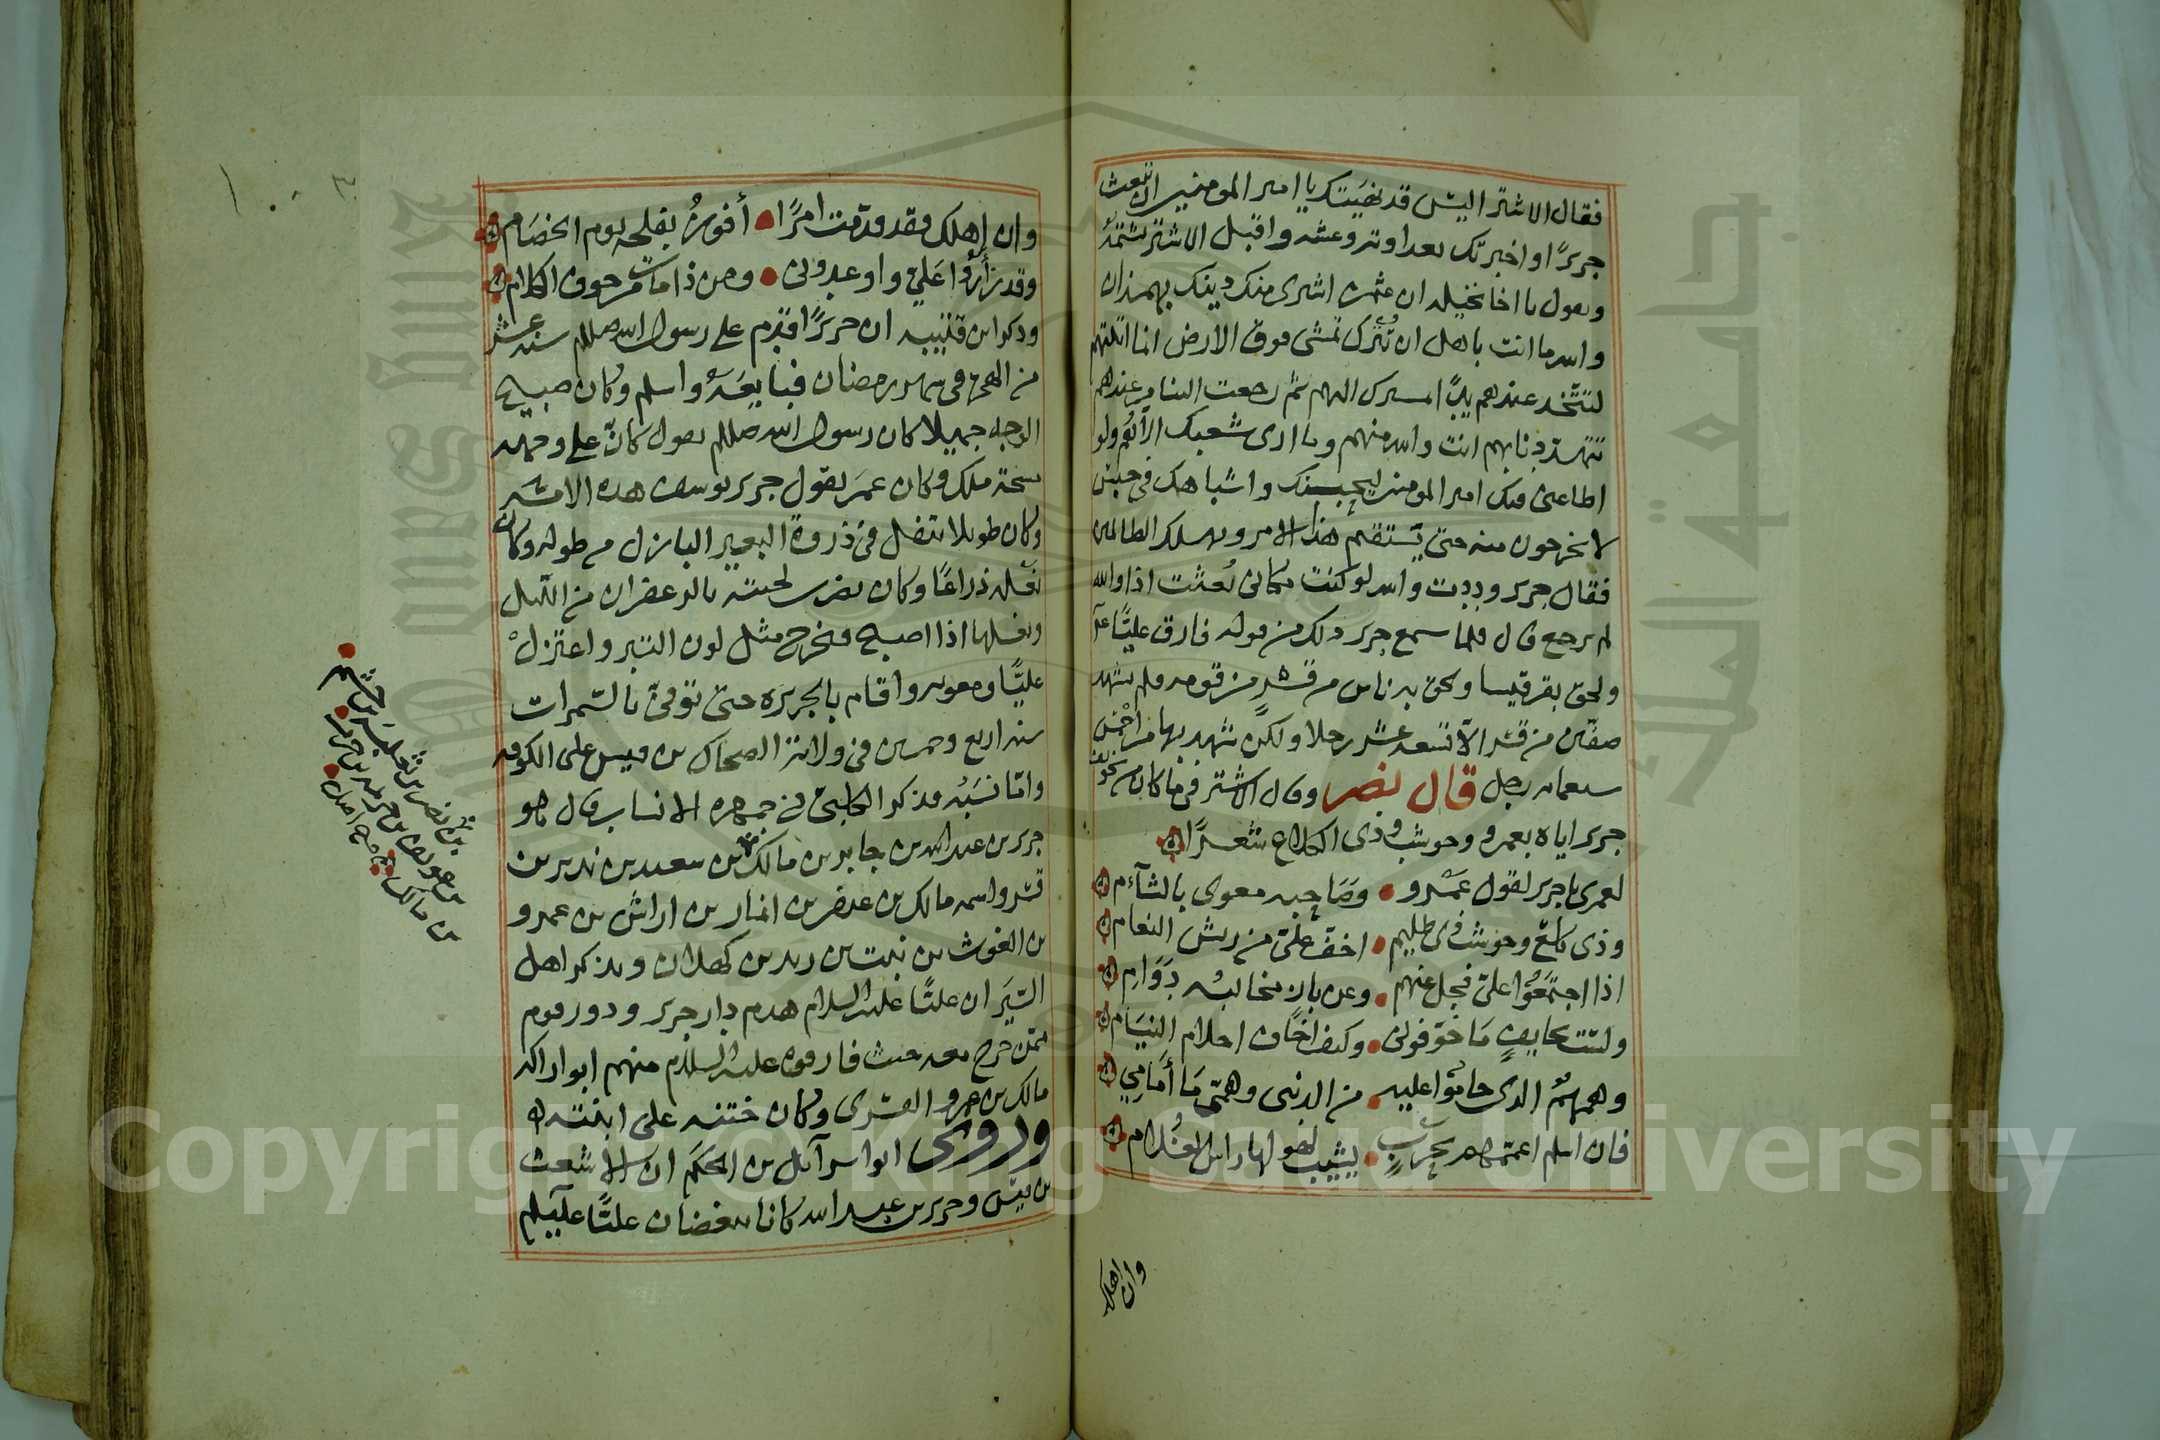 فقال الاشتر اليس قد نهيتك يا امير المومنين ان تبعث
جريرًا واخبرتك بعداوته وغشه واقبل الاشتر يشتمه
ويقول يا اخا بجيله ان عثمن اشترى منك دينك بهمذان
والله ما انت باهل ان تُترك تمشى فوق الارض انما اتيتهم
لتتخذ عندهم يدًا بمسيرك اليهم ثم رجعت الينا من عندهم
تتهددنا بهم انت والله منهم وما ارى سعيك الا لهم ولو
اطاعنى فيك امير المومنين ليحبسنك واشباهك فى حبس
لا يخرجون منه حتى يستقيم هذا الامر ويهلك الظالمين
فقال جرير وددت والله لو كنت مكانى بُعثت اذا والله
لم ترجع قال فلما سمع جرير ذلك من قوله فارق عليًّا علم
ولحق بقرقيسا ولحق به ناس من قسر من قومه ولم يشهد
صفين من قسر الا تسعه عشر رجلا ولكن شهد بها من احمس
سبعمايه رجل قال نصر وقال الاشتر فى ما كان من تخويف
جرير اياه بعمرو وحوشب وذى الكلاع شعرًا
لعمرى يا جرير لقول عَمْرو وصَاحبه معوى بالشآم
وذى كلع وحوشب ذى ظليم اخف علىّ من ريش النعام
اذا اجتمعُوا علىّ فخل عنهم وعن باز مخالبُه دَوَامِ
ولستُ بخايفٍ مَا خوّفونى وكيف اخاف احلام النيَام
وهمهمُ الذى حامُوا عليه من الدنى وهمّى مَا أمَامِي
فان اسلم اعمّهم بحَربٍ يشيب لهولها راس الغُلام
وان اهلك
وان اهلك فقد قدّمت امرًا أفوزُ بفلجه يوم الخصَام
وقد زأرُوا علىّ واوعدونى ومن ذا مات من خوف الكلام
وذكر ابن قتيبه ان جريرًا قدم على رسول الله صللم سنه عشر
من الهجره فى شهر رمضان فبايعَه واسلم وكان صبيح
الوجه جميلا كان رسول الله صللم يقول كانّ على وجهه
مسحة ملك وكان عمَر يقول جرير يوسف هذه الامّه
وكان طويلا يتفل فى ذروة البعير البازل من طوله وكان
نعله ذراعًا وكان يخضب لحيته بالزعفران من الليل
ويغسلها اذا اصبح فيخرج مثل لون التبر واعتزل
عليًّا ومعويه واقام بالجزيره حتى توفى بالسّرات
سنه اربع وخمسين فى ولاية الضحاك بن قيس على الكوفه
وامّا نسَبُه فذكر الكلبى فى جمهره الانساب قال هو
جرير بن عبد الله بن جابر بن مالك بن سعد بن نذير بن
قسر واسمه مالك بن عبقر بن انمار بن اراش بن عمرو
بن الغوث بن نبت بن زيد بن كهلان ويذكر اهل
السّيَر ان عليًّا عليه السلام هدم دار جرير ودور قوم
ممّن خرج معه حيث فارقوه عليه السلام منهم ابو اراكه
مالك بن عمرو القسرى وكان ختنه على ابنته
وروى ابو اسرآئل بن الحكَم ان الاشعث
بن قيس وجرير بن عبد الله كانا يبغضان عليًّا عليه السلم
بن نصر بن ثعلبه بن جشم
بن عويف بن حزيمه بن حرب
بن مالك صح اصل